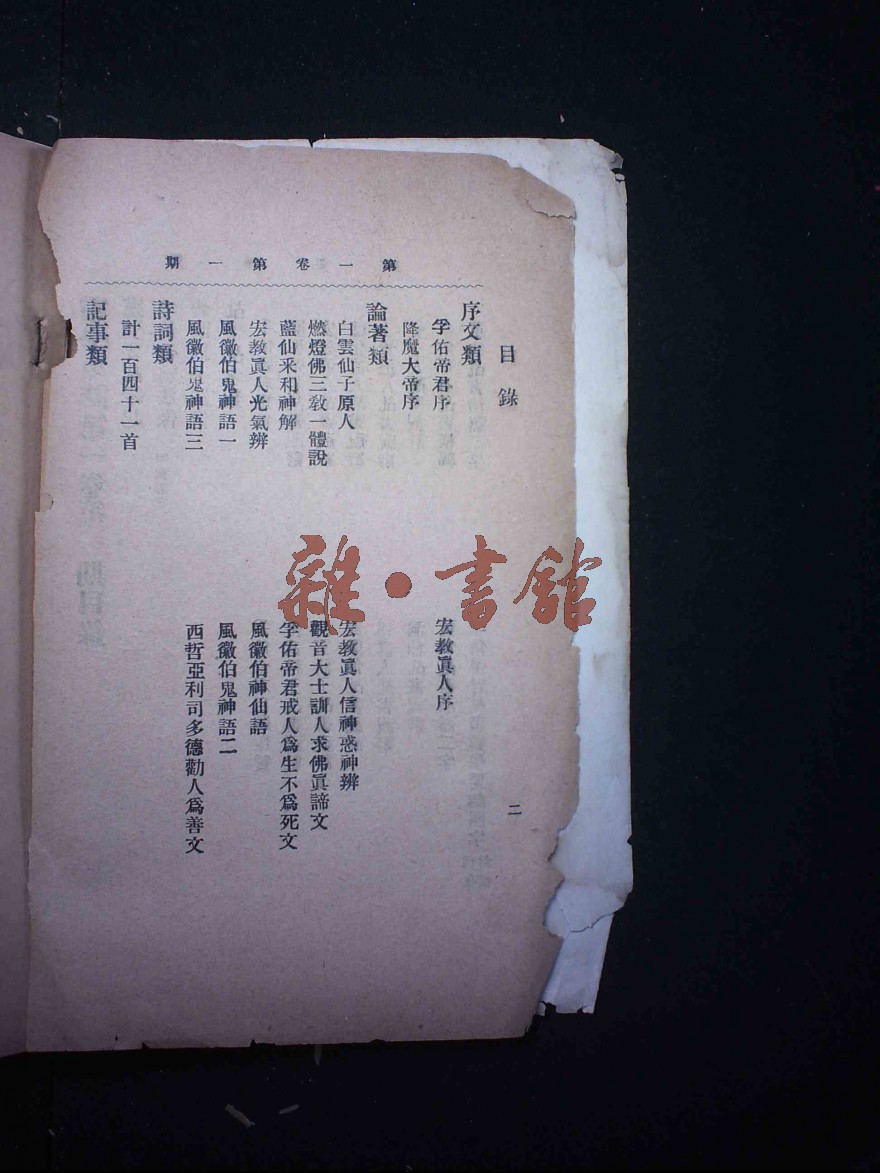 第一卷第一期
目錄
二
序文類
孚佑帝君序
宏教眞人序
降魔大帝序
論著類
白雲仙子原人
宏教眞人信神惑神辨
燃燈佛三教一體說
觀音大士訓人求佛眞諦文
藍仙采和神解
孚佑帝君戒人爲生不爲死文
宏教眞人光氣辨
風徽伯神仙語
風徽伯鬼神語一
風徽伯鬼神語二
風徽伯鬼神語三
西哲亞利司多德勸人爲善文
詩詞類
計一百四十一首
記事類
雜·書館